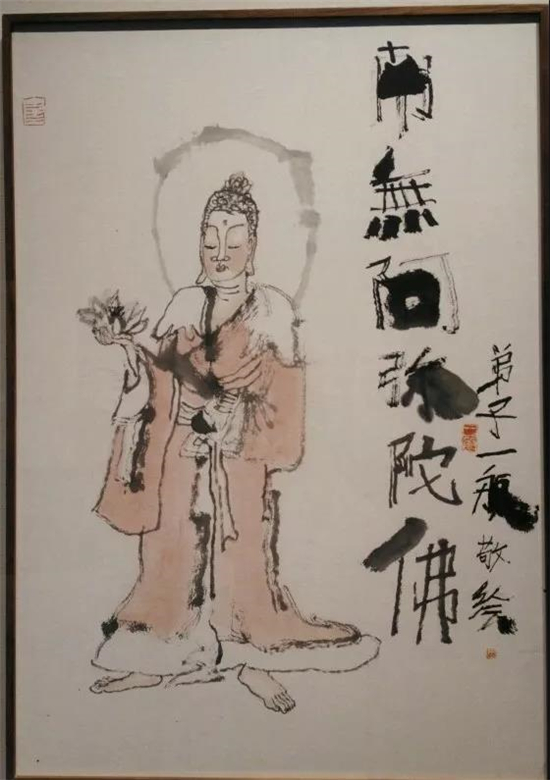 南無阿弥陀佛
弟子一 敬绘